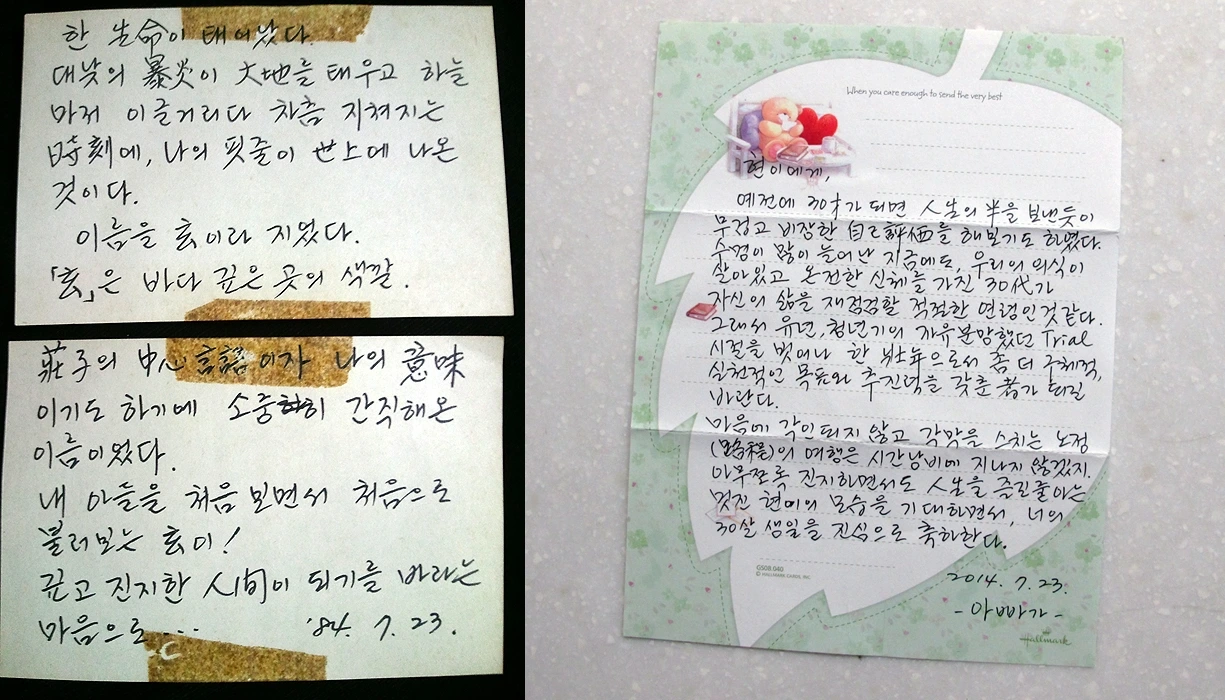 한 生命이 태어났다.
대낮의 暴炎이 大地를 태우고 하늘
마저 이글거리다 차츰 지쳐지는
時刻에, 나의 핏줄이 世上에 나온
것이다.
이름을 玄이라 지었다.
「玄」은 바다 깊은 곳의 색깔.
莊子의 中心 言語이자 나의 意味
이기도 하기에 소중히 간직해온
이름이었다.
내 아들을 처음 보면서 처음으로
불러보는 玄이!
곧고 진지한 人間이 되기를 바라는
마음으로 ...
'84. 7. 23.
When you care enough to send the very best
현이에게,
예전에 30才가 되면 人生의 半을 보낸듯이
무겁고 비장한 自己評価를 해보기도 하였다.
수명이 많이 늘어난 지금에도, 우리의 의식이
살아있고 온전한 신체를 가진 30代가
자신의 삶을 재점검할 적절한 연령인것 같다.
그래서 유년, 청년기의 자유분방했던 Trial
시절을 벗어나 한 壯年으로서 좀 더 구체적,
실천적인 목표와 추진력을 갖춘 者가 되길
바란다.
마음에 각인되지 않고 각막을 스치는 노정
(路程)의 여행은 시간낭비에 지나지 않겠지.
아무쪼록 진지하면서도 人生을 즐길줄아는
멋진 현이의 모습을 기대하면서, 너의
30살 생일을 진심으로 축하한다.
GSOB.040
© HALLMARK CARDS, INC.
2014. 7. 23.
-아빠가-
Hallmark